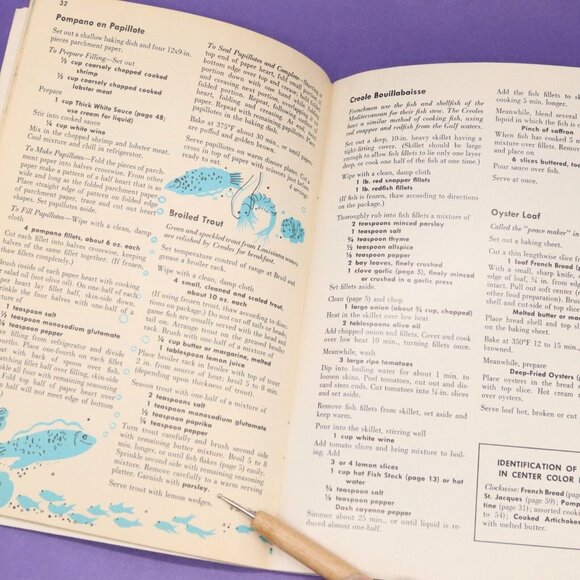 32
Pompano en Papillote
Set out a shallow baking dish and four 12x9-in.
pieces parchment paper.
To Prepare Filling—Set out
½ cup coarsely chopped cooked
shrimp
½ cup coarsely chopped cooked
lobster meat
Prepare
1 cup Thick White Sauce (page 48;
use cream for liquid)
Stir into cooked sauce
¼ cup white wine
Mix in the chopped shrimp and lobster meat.
Cool mixture and chill in refrigerator.
To Make Papillotes—Fold the pieces of parch-
ment paper in two crosswise. From other
paper make a pattern of a half heart that is as
wide and long as the folded parchment paper.
Place straight edge of pattern on folded edge
of parchment paper, trace and cut out heart
shapes. Set papillotes aside.
To Fill Papillotes—Wipe with a clean, damp
cloth
4 pompano fillets, about 6 oz. each
Cut each fillet into halves crosswise, keeping
halves of the same fillet together. (If frozen,
thaw fillets completely.)
Brush inside of each paper heart with cooking
or salad oil (not olive oil). On one-half of each
paper heart lay fillet half, skin-side down.
Sprinkle the four halves with one-half of a
mixture of
1 teaspoon salt
½ teaspoon monosodium glutamate
¼ teaspoon pepper
filling from refrigerator and divide
fourths. Place one-fourth on each fillet
with back of spoon over fish.
matching fillet half over filling, skin-side
Sprinkle all four with remaining seasoning
fold top half of paper heart over
half will not meet edge of bottom
To Seal Papillotes and Complete—Starting at
top end of paper heart, fold small portion of
bottom edge over top and crease. Hold this
portion down with one hand while folding
and creasing next portion, overlapping first
folded portion. Repeat folding and creasing
around heart. Fold end of
paper. Repeat with remaining papillotes. Place
papillotes in the baking dish.
Bake at 375°F about 30 min., or until papers
are puffed and golden brown.
Serve papillotes on warm dinner plates. Cut a
cross in top of paper with scissors just when
ready to eat.
4 servings
Broiled Trout
Green and speckled trout from Louisiana waters
are relished by Creoles for breakfast.
Set temperature control of range at Broil and
grease a broiler rack.
Wipe with a clean, damp cloth
4 small, cleaned and scaled trout
about 10 oz. each
(If using frozen trout, thaw according to direc-
tions on package.) Do not cut off head or tail;
game fish are usually served with the head and
tail on. Arrange trout on the greased broiler
rack. Brush with one-half of a mixture of
¼ cup butter or margarine, melted
2 tablespoons lemon juice
Place broiler rack in broiler with top of trout
3 in. from source of heat; broil 5 to 8 min.
(depending upon thickness of trout).
Season trout with one-half of a mixture of
2 teaspoons salt
1 teaspoon monosodium glutamate
½ teaspoon paprika
¼ teaspoon pepper
Turn trout carefully and brush second side
with remaining butter mixture. Broil 5 to 8
min. longer, or until fish flakes (page 5) easily.
Sprinkle second side with remaining seasoning
mixture. Remove carefully to a warm serving
platter. Garnish with parsley.
Serve trout with lemon wedges.
Creole Bouillabaisse
Frenchmen use the fish and shellfish of the
Mediterranean for their fish stew. The Creoles
have a similar method of cooking fish, using
red snapper and redfish from the Gulf waters.
Set out a deep, 10-in. heavy skillet having a
tight-fitting cover. (Skillet should be large
enough to allow fish fillets to lie only one layer
deep, or cook one half of the fish at one time.)
Wipe with a clean, damp cloth
1 lb. red snapper fillets
1 lb. redfish fillets
(If fish is frozen, thaw according to directions
on the package.)
Thoroughly rub into fish fillets a mixture of
2 teaspoons minced parsley
1 teaspoon salt
¾ teaspoon thyme
½ teaspoon allspice
⅛ teaspoon pepper
2 bay leaves, finely crushed
1 clove garlic (page 5), finely minced
or crushed in a garlic press
Set fillets aside.
Clean (page 5) and chop
1 large onion (about ¾ cup, chopped)
Heat in the skillet over low heat
2 tablespoons olive oil
Add chopped onion and fillets. Cover and cook
over low heat 10 min., turning fillets once.
Meanwhile, wash
3 large ripe tomatoes
Dip into boiling water for about 1 min. to
loosen skins. Peel tomatoes, cut out and dis-
card stem ends. Cut tomatoes into ¼-in. slices
and set aside.
Remove fish fillets from skillet, set aside and
keep warm.
Pour into the skillet, stirring well
1 cup white wine
Add tomato slices and bring mixture to boil-
ing. Add
3 or 4 lemon slices
1 cup hot Fish Stock (page 13) or hot
water
¾ teaspoon salt
⅛ teaspoon pepper
Dash cayenne pepper
Simmer about 25 min., or until liquid is re-
duced almost one-half.
Add the fish fillets to sk
cooking 5 min. longer.
Meanwhile, blend several
liquid in which the fish is
Pinch of saffron
When fish has cooked 5
mixture over fillets. Remove
and place on
6 slices buttered, to
Pour sauce over fish.
Serve at once.
Oyster Loaf
Called the "peace maker" in
Set out a baking sheet.
Cut a thin lengthwise slice
1 loaf French Bread (
With a small, sharp knife,
edge of loaf, ¾ in. from edge
intact. Pull out soft center (
other food preparation). Brush
and under side of top slice
Melted butter or ma
Place bread shell and top slice
on the baking sheet.
Bake at 350°F 12 to 15 min.,
browned.
Meanwhile, prepare
Deep-Fried Oysters (
Place oysters in the bread sh
with top slice. Hot cream
over oysters.
Serve loaf hot, broken or cut
IDENTIFICATION OF
IN CENTER COLOR
Clockwise: French Bread (page
St. Jacques (page 59); Pomp
tine (page 31); assorted cookies
to 54); Cooked Artichokes
with melted butter.